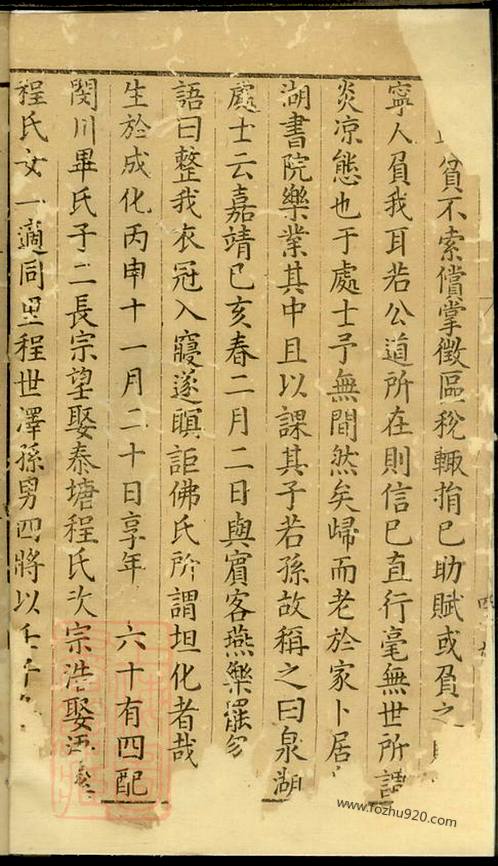 貧不索償掌徵區稅輙捐已助賦或負之
寧人負我耳若公道所在則信已直行毫無世所謂
炎凉態也于處士予無間然矣歸而老於家卜居
湖書院樂業其中且以課其子若孫故稱之曰泉湖
處士云嘉靖已亥春二月二日與賓客燕樂罷
語曰整我衣冠入寢遂瞑詎佛氏所謂坦化者哉
生於成化丙申十一月二十日享年 六十有四配
閔川畢氏子二長宗望娶泰塘程氏次宗浩娶
程氏女一適同里程世澤孫男四將以
www.fozhu920.com